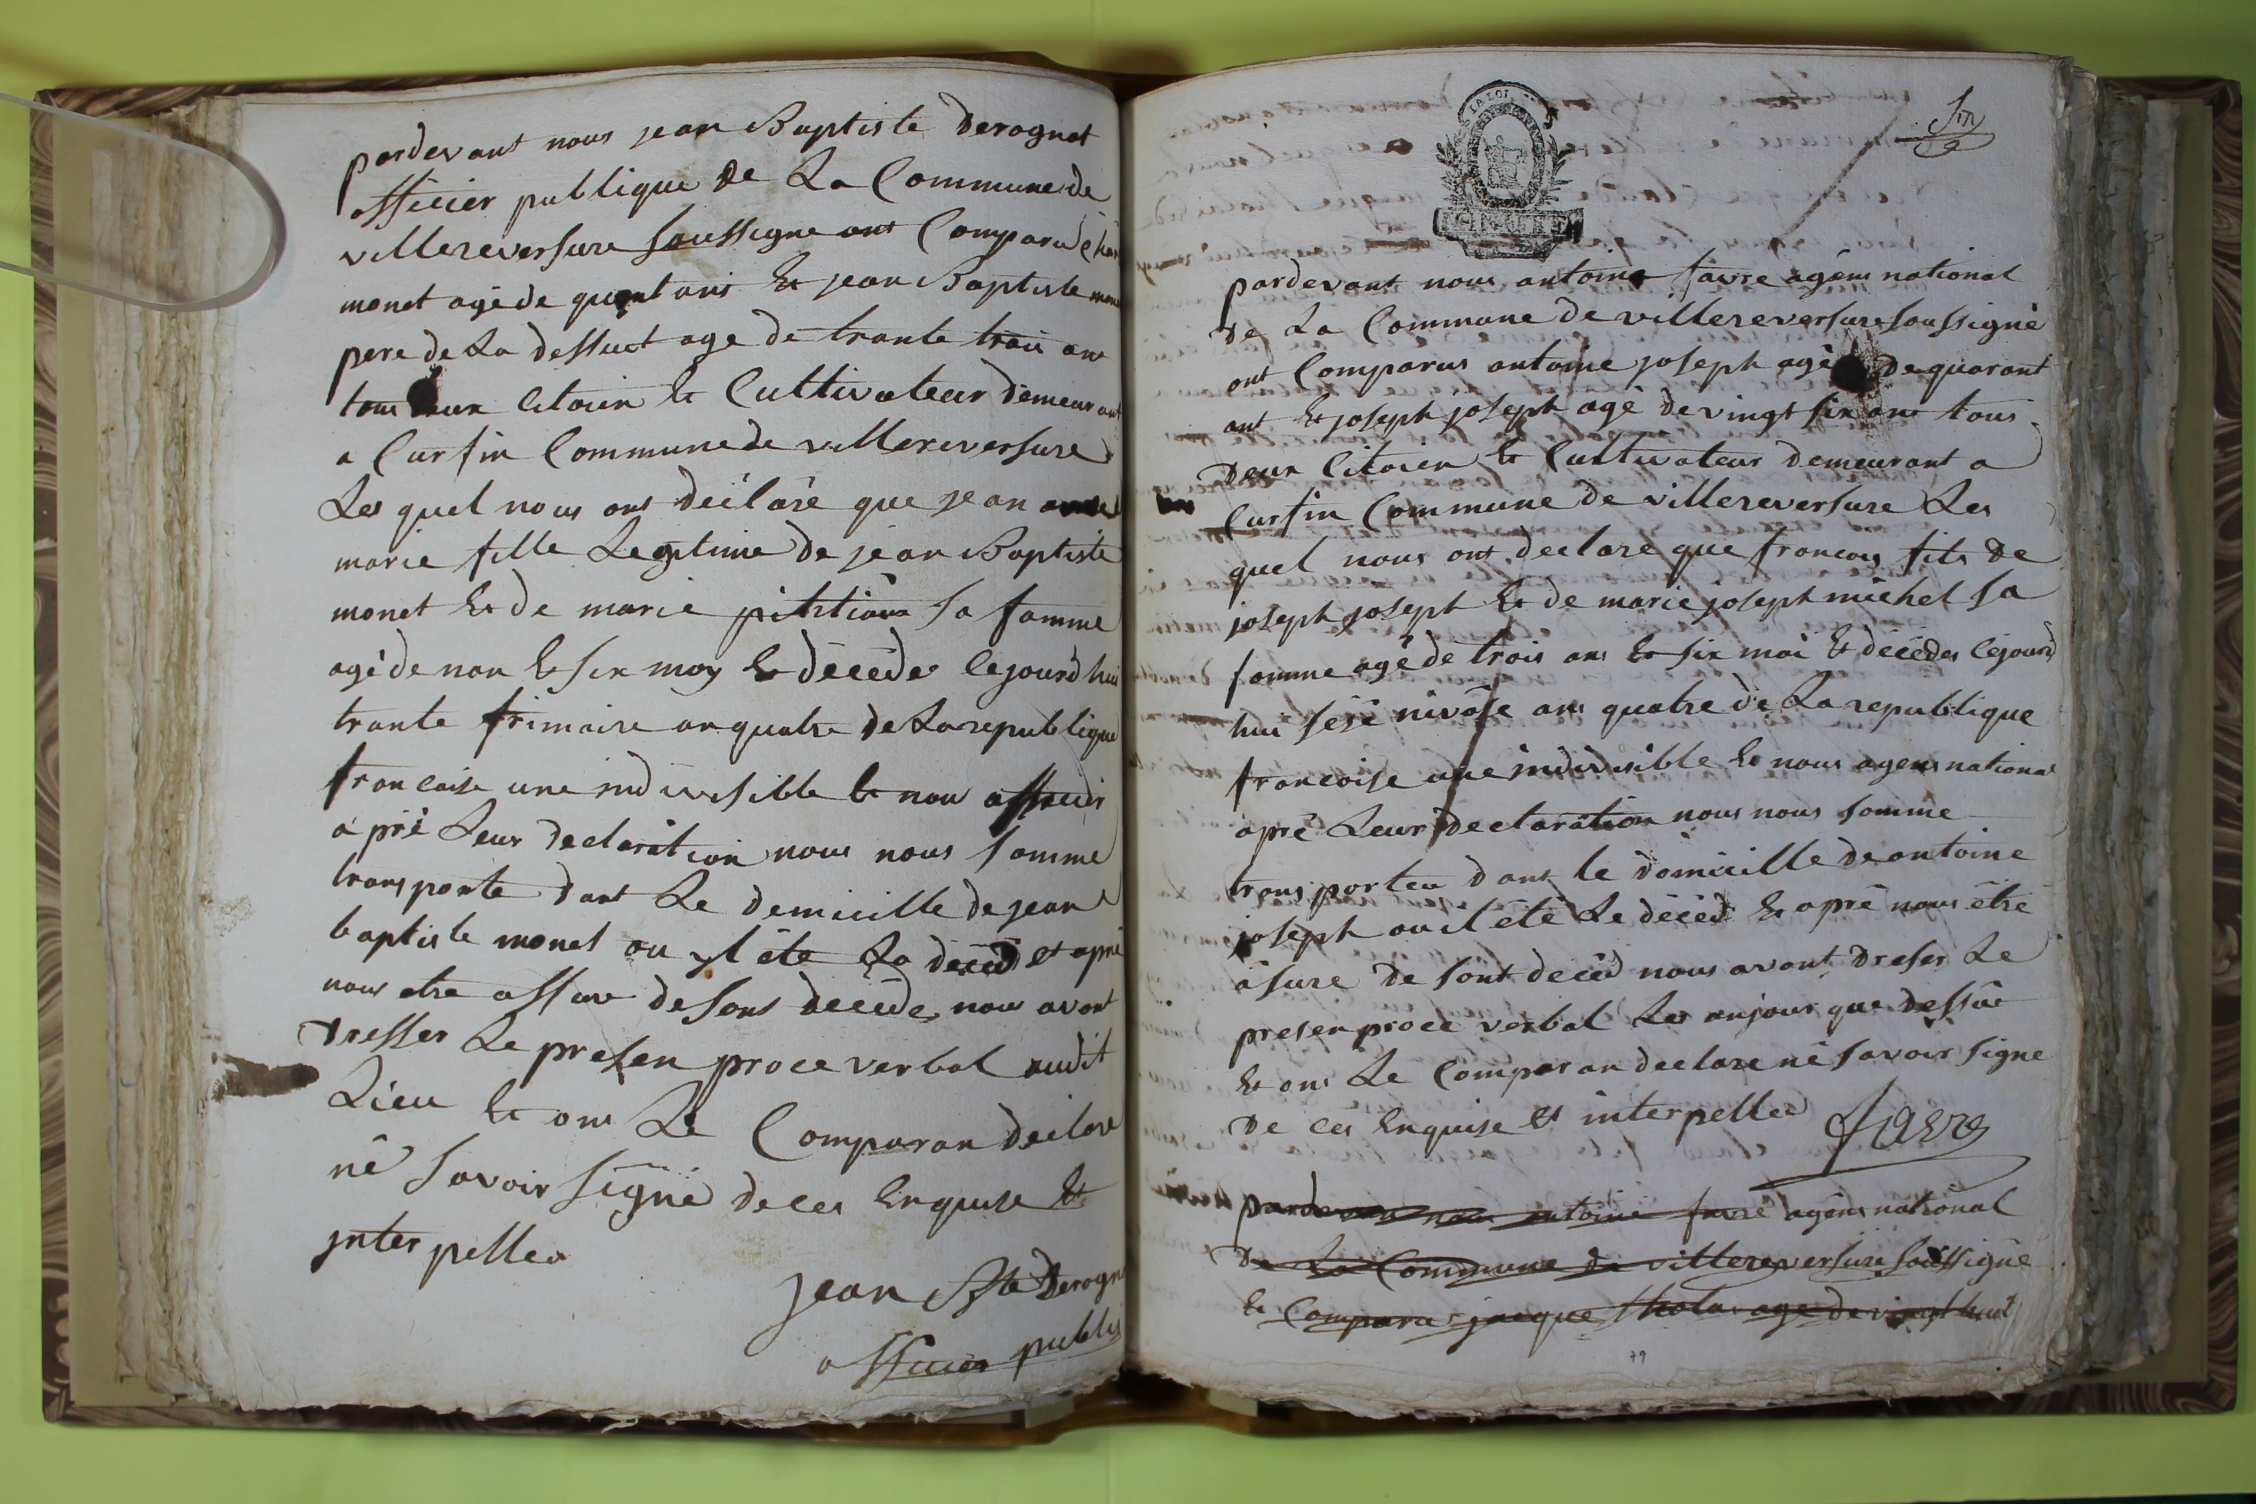 pardevant nous jean Baptiste Derognat
officier publique de La Commune de
villereversure soussigne ont Comparu
monet agé de quarant ans Et jean Baptiste
pere de La dessuct age de trante trois ans
tous deux Citoien Et Cultivateur demeurant
a Cursin Commune de villereversure
Les quel nous ont déclaré que jean
marie fille Legitime de jean Baptiste
monet Et de marie sa famme
agé de non Et six moy Et décéde Cejourd'hui
trante frimaire an quatre de La republique
francaise une indivisible Et nou officier
apré Leur declaration nous nous somme
transporte dant Le demicille de jean
baptiste monet ou yl été La décéd et apré
nous etre assure de sont decede nous avont
dresser Le presen proce verbal audit
Lieu Et ont Le Comparan declare
né savoir signé de ces Enquise Et
interpellea
jean Bte Derogna
officier public
LA LOI
pardevant nous antoine favre agent national
De La Commune de villereversure soussigné
ont Comparus antoine joseph agé De quarant
ant Et joseph joseph agé de vingt six ans tous
Deux Citoien Et Cultivateur demeurant a
Cursin Commune de villereversure Les
quel nous ont declare que francois fils de
joseph joseph Et de marie joseph michel sa
famme agé de trois ans Et six moi Et décédes Cejourd
hui sesé nivôse ans quatre de La republique
francoise une indivisible Et nous agent national
apré Leur declaration nous nous somme
transportea dans le domicille de antoine
joseph ou il été Le décéd Et apré nous être
asure de sont decéd nous avont dreser Le
presen proce verbal Les anjour que dessûe
Et ont Le Comparan declare né savoir signe
De ces Enquise Et interpellea
favre
pardevan nous antoine favre agent national
De La Commune de villereversure soussigné
Et Comparu jacque age de vingt huit
79